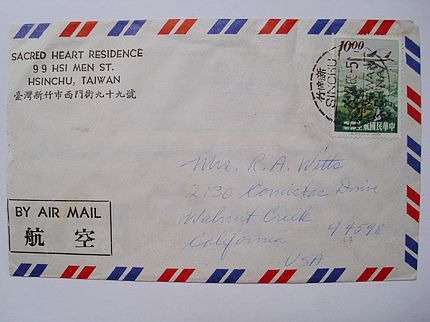 SACRED HEART RESIDENCE
99 HSI MEN ST.
HSINCHU, TAIWAN
臺灣新竹市西門街九十九號
10.00
SINCHU
TAIWAN
CHINA
中華民國航空郵票
Mrs. R. A. Witte
2130 Comistas Drive
Walnut Creek
California 94598
USA
BY AIR MAIL
航空